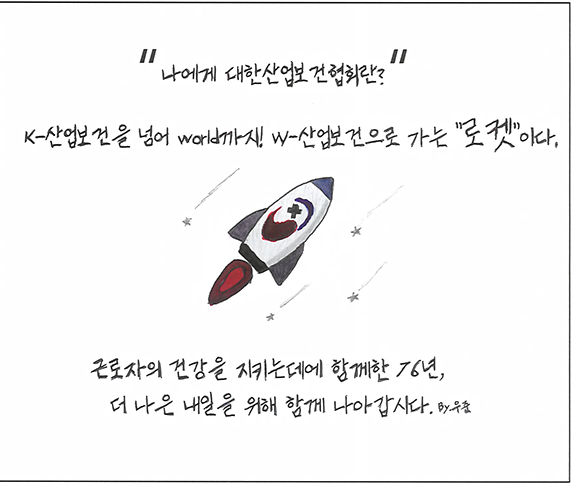 "나에게 대한산업보건협회란?"
K-산업보건을 넘어 world까지! W-산업보건으로 가는 "로켓"이다.
근로자의 건강을 지키는데에 함께한 76년,
더 나은 내일을 위해 함께 나아갑시다. By.우준